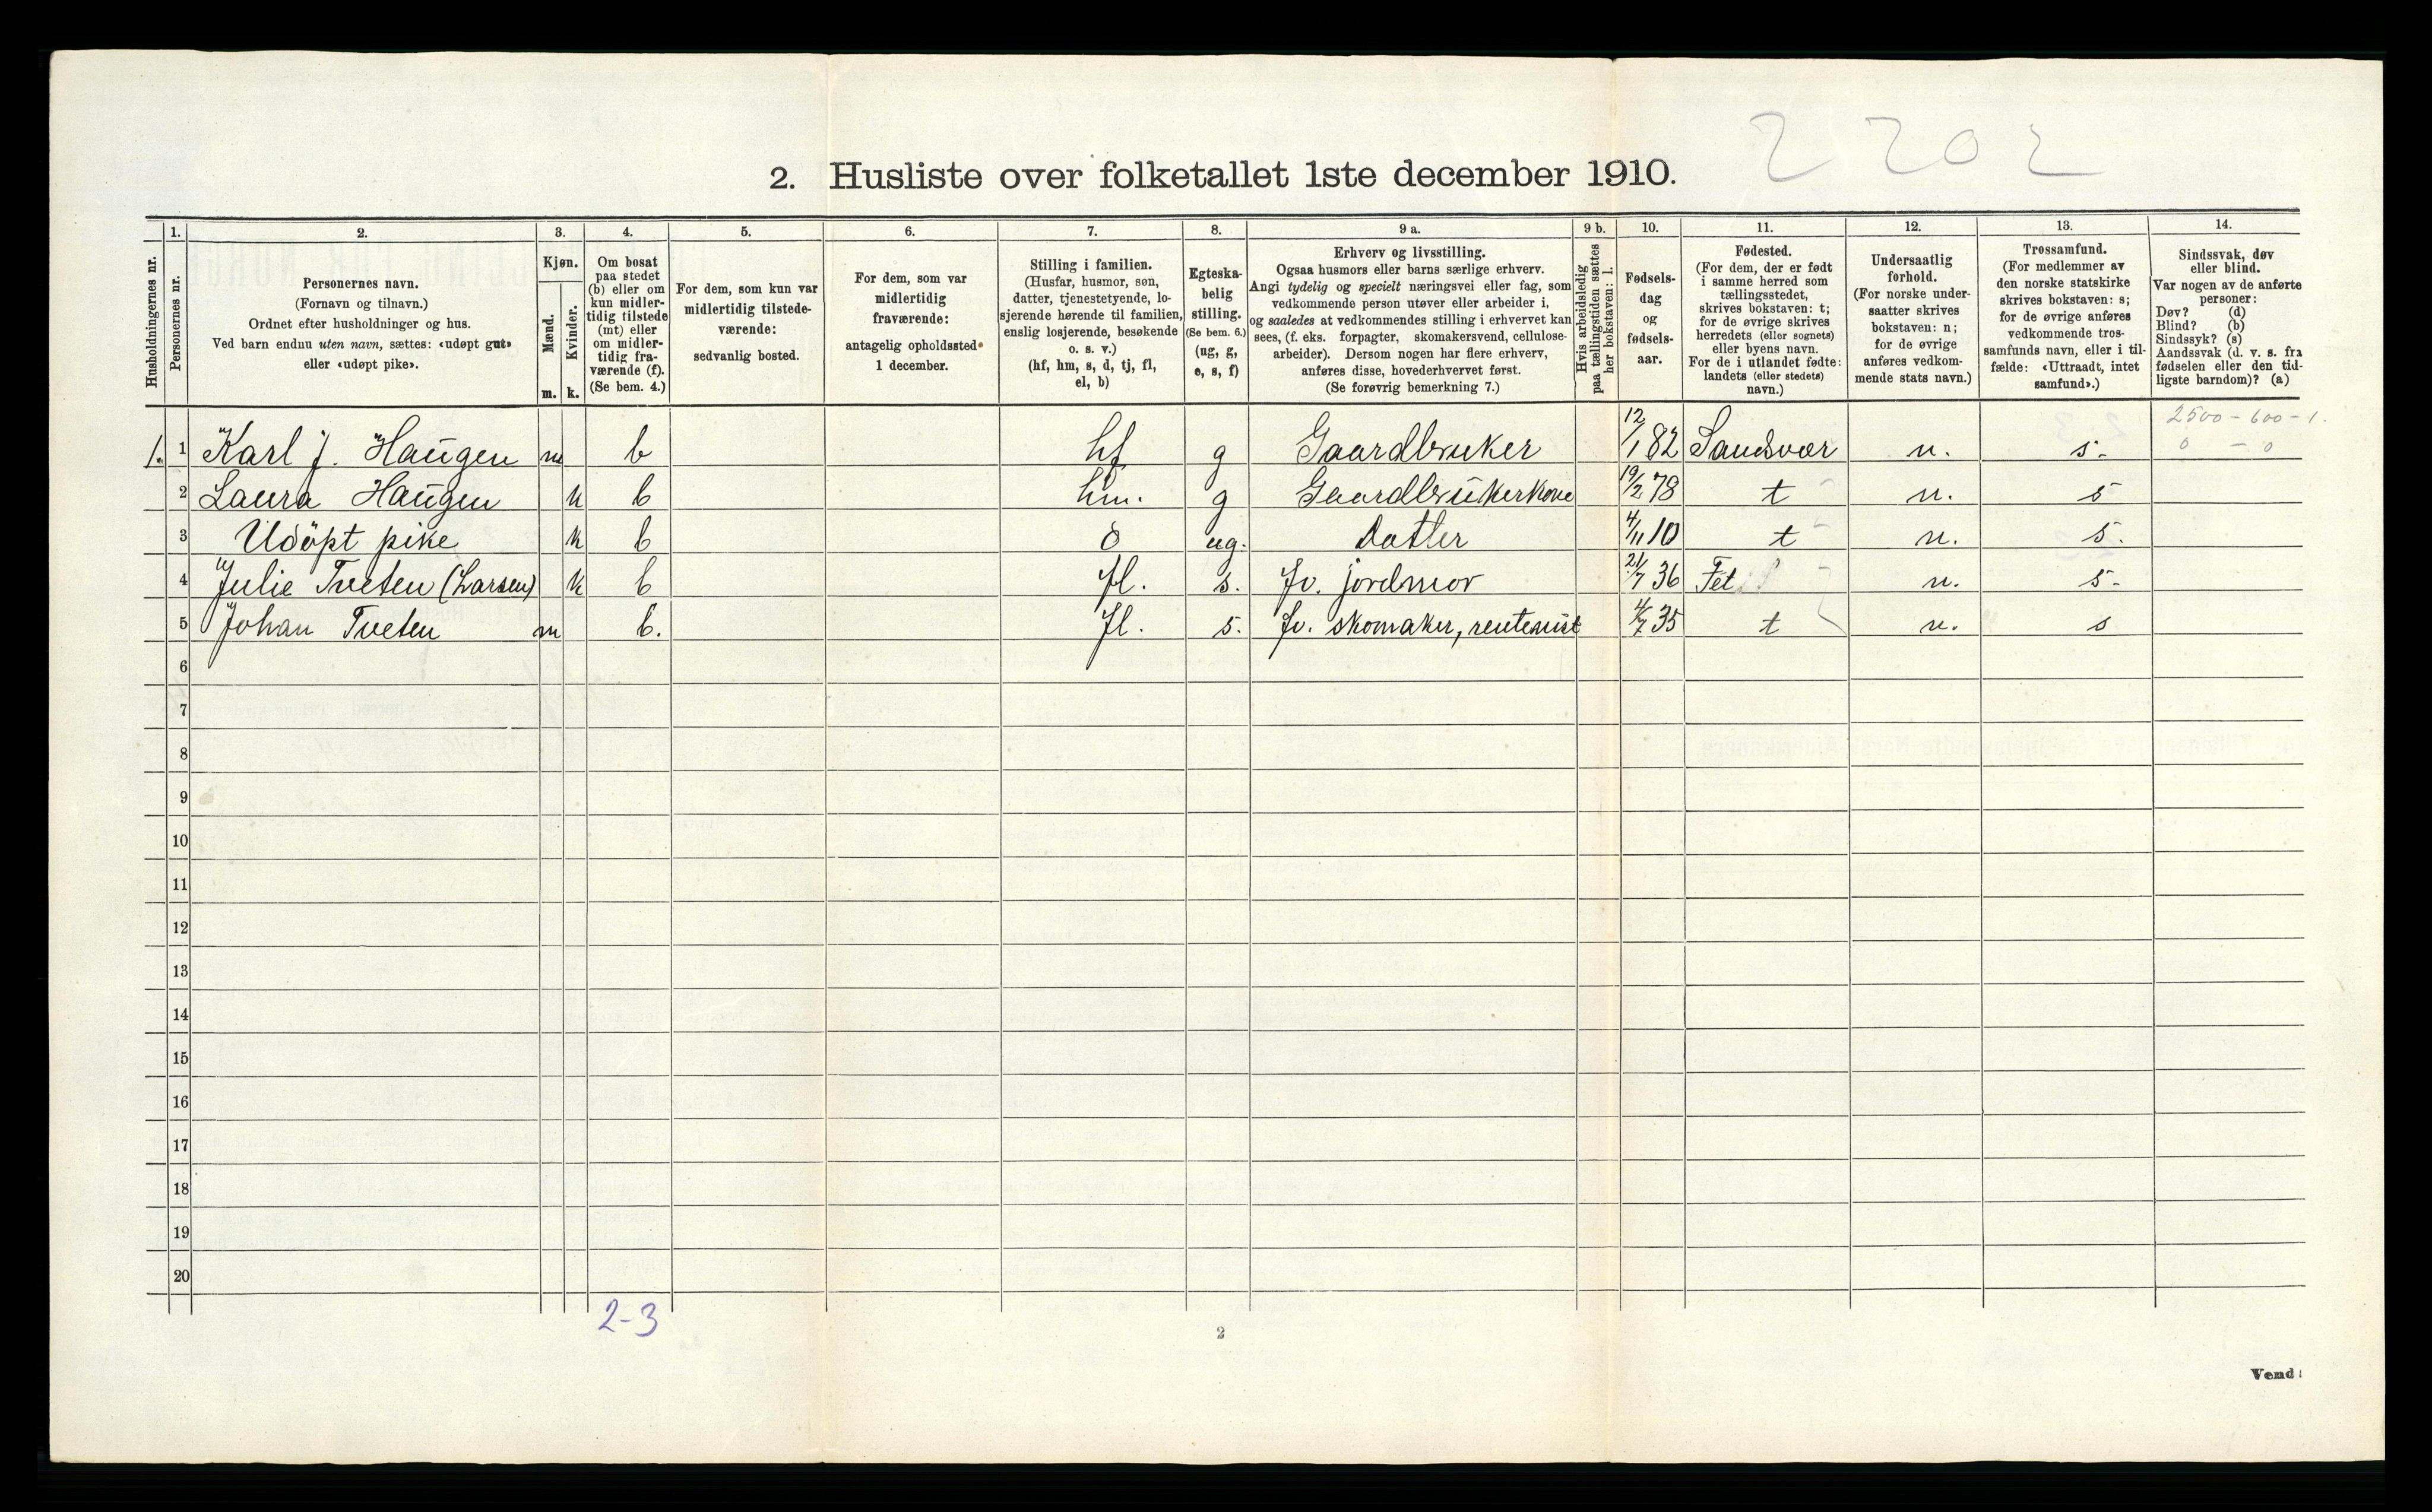 2 202
2. Husliste over folketallet 1ste december 1910.
Husholdningernes nr.
1.
Personernes nr.
2.
Personernes navn.
(Fornavn og tilnavn.)
Ordnet efter husholdninger og hus.
Ved barn endnu uten navn, sættes: «udøpt gut»
eller «udøpt pike».
3.
Kjøn.
Mænd.
Kvinder.
m. k.
4.
Om bosat
paa stedet
(b) eller om
kun midler-
tidig tilstede
(mt) eller
om midler-
tidig fra-
værende (f).
(Se bem. 4.)
5.
For dem, som kun var
midlertidig tilstede-
værende:
sedvanlig bosted.
6.
For dem, som var
midlertidig
fraværende:
antagelig opholdssted
1 december.
7.
Stilling i familien.
(Husfar, husmor, søn,
datter, tjenestetyende, lo-
sjerende hørende til familien,
enslig losjerende, besøkende
o. s. v.)
(hf, hm, s, d, tj, fl,
el, b)
8.
Egteska-
belig
stilling.
(Se bem. 6.)
(ug, g,
e, s, f)
9 a.
Erhverv og livsstilling.
Ogsaa husmors eller barns særlige erhverv.
Angi tydelig og specielt næringsvei eller fag, som
vedkommende person utøver eller arbeider i,
og saaledes at vedkommendes stilling i erhvervet kan
sees, (f. eks. forpagter, skomakersvend, cellulose-
arbeider). Dersom nogen har flere erhverv,
anføres disse, hovederhvervet først.
(Se forøvrig bemerkning 7.)
9 b.
Hvis arbeidsledig
paa tællingstiden sættes
her bokstaven: l.
10.
Fødsels-
dag
og
fødsels-
aar.
11.
Fødested.
(For dem, der er født
i samme herred som
tællingsstedet,
skrives bokstaven: t;
for de øvrige skrives
herredets (eller sognets)
eller byens navn.
For de i utlandet fødte:
landets (eller stedets)
navn.)
12.
Undersaatlig
forhold.
(For norske under-
saatter skrives
bokstaven: n;
for de øvrige
anføres vedkom-
mende stats navn.)
13.
Trossamfund.
(For medlemmer av
den norske statskirke
skrives bokstaven: s;
for de øvrige anføres
vedkommende tros-
samfunds navn, eller i til-
fælde: «Uttraadt, intet
samfund».)
14.
Sindssvak, døv
eller blind.
Var nogen av de anførte
personer:
Døv? (d)
Blind? (b)
Sindssyk? (s)
Aandssvak (d. v. s. fra
fødselen eller den tid-
ligste barndom)? (a)
2500 - 600 - 1.
1. 1 Karl J. Haugen m b hf g Gaardbruker 12/1 82 Sandsvær n. s. 0 - 0
2 Laura Haugen k b hm. g Gaardbrukerkone 19/2 78 t n. s
3 Udöpt pike k b d ug. Datter 4/11 10 t n. s.
4 Julie Tveten (Larsen) k b fl. s. Fv. jordmor 21/7 36 Fet n. s.
5 Johan Tveten m b. fl. s. Fv. skomaker, rentenist 4/7 35 t n. s
6
7
8
9
10
11
12
13
14
15
16
17
18
19
20
2-3
2
Vend!